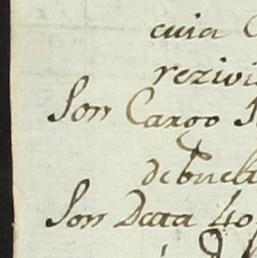 cuia
rezivi
Son Cargo 1
debuelt
Son Data 40